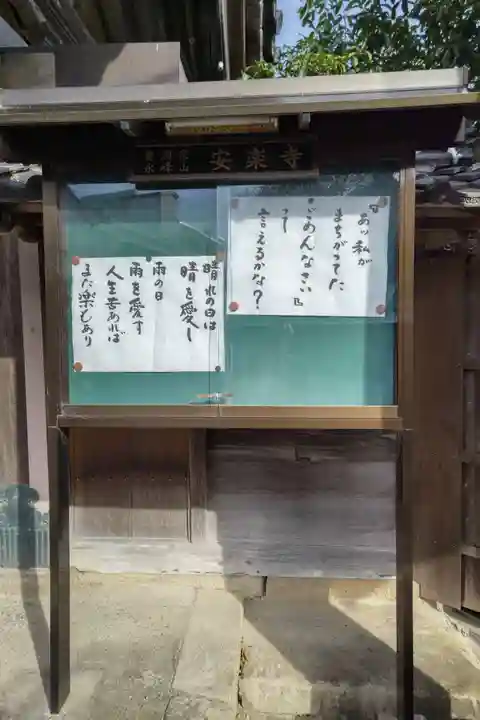 安楽寺
『あッ私が
まちがってた
ごめんなさい』
って
言えるかな？
晴れの日は
晴を愛し
雨の日
雨を愛す
人生苦あれば
また楽もあり